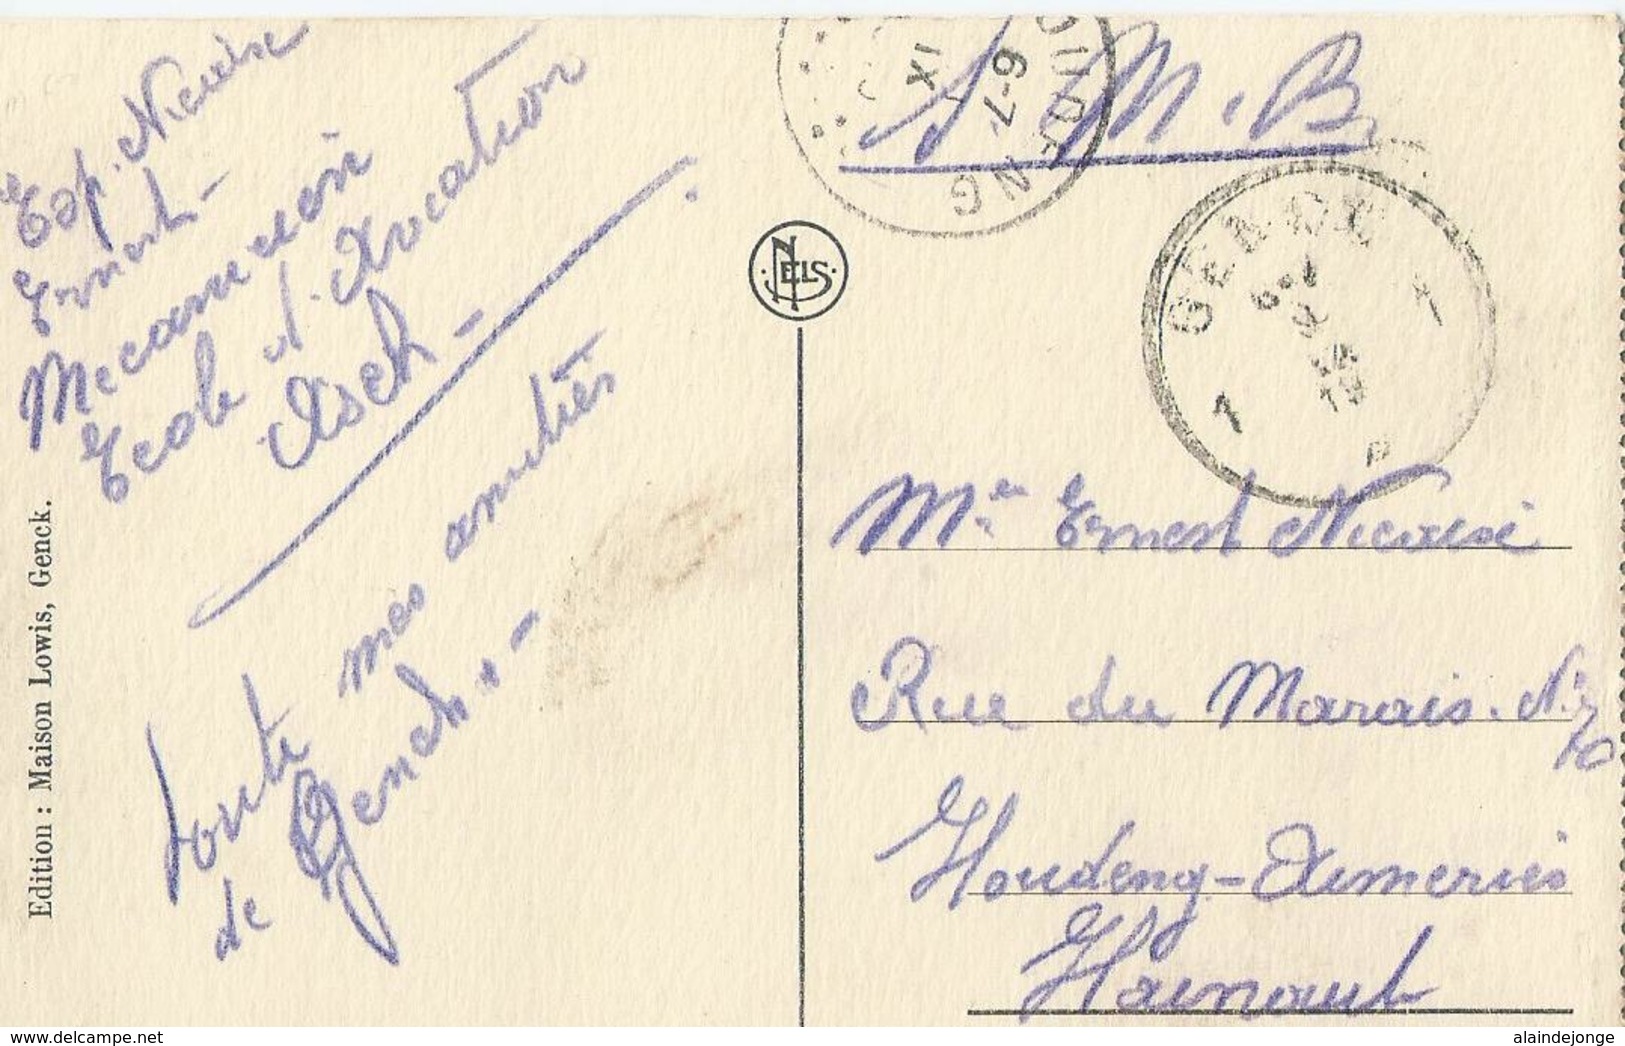 Exp. Nicaise
Ernest -
Mecanicien
Ecole d'Aviation
Asch -
Toute mes amitiés
de Genck -
Edition : Maison Lowis, Genck.
NELS
S. M. B
6-7
IX
NG
GENCK
1
Me Ernest Nicaise
Rue du Marais. No 70
Houdeng - Aimeries
Hainaut
http://www.delcampe.net
alaindejonge